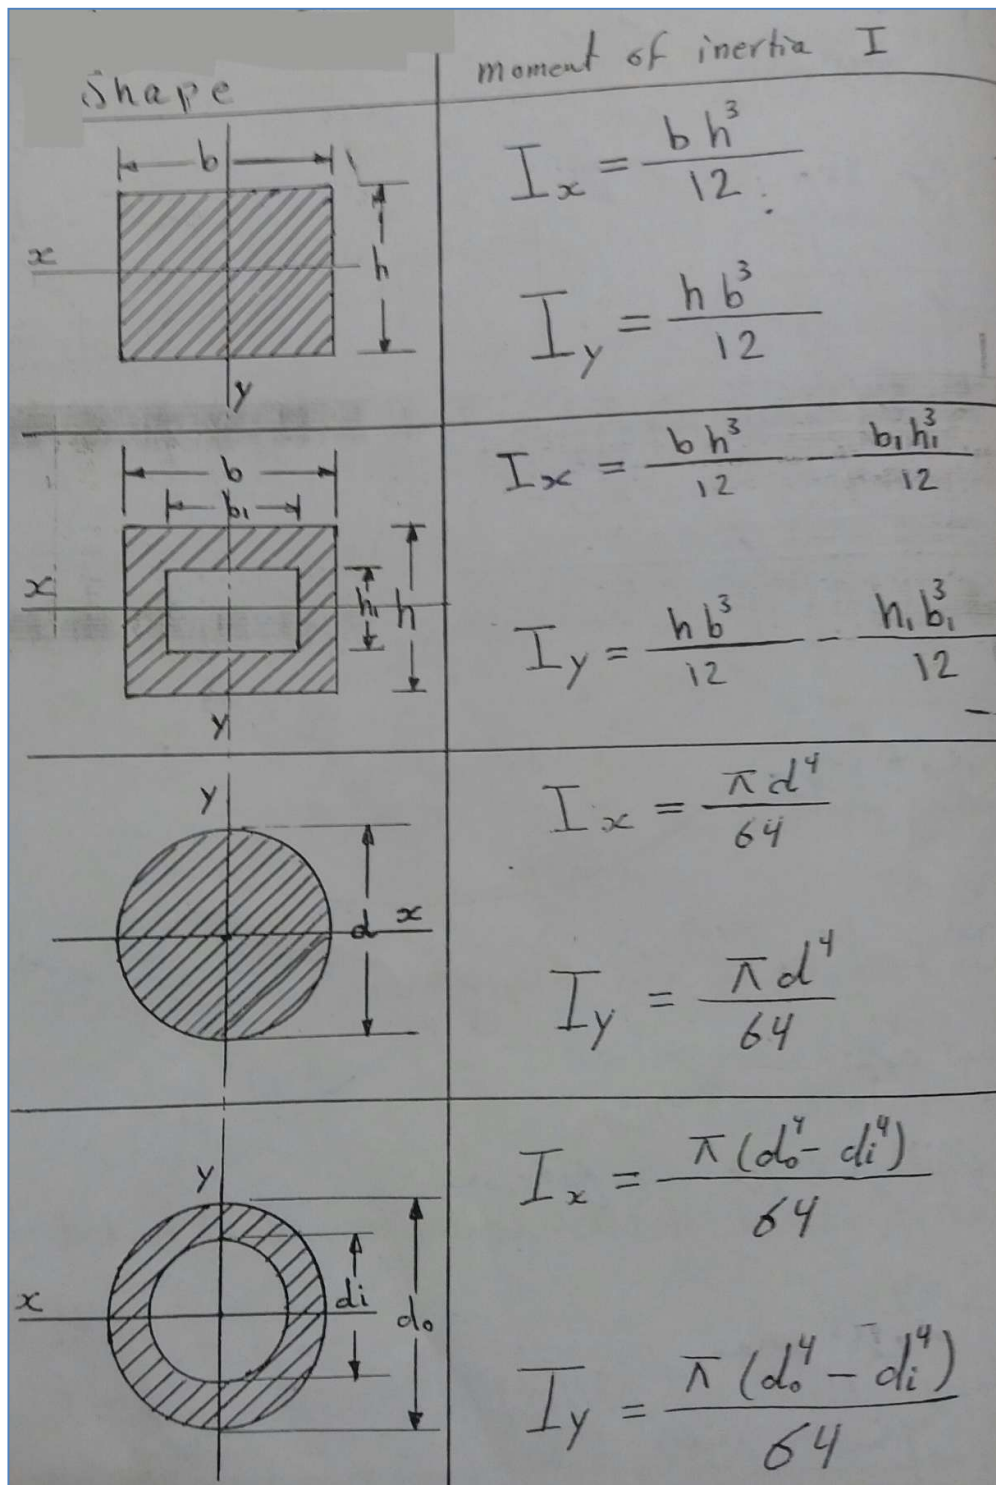 Shape
moment of inertia I
b
h
x
y
Ix = bh³/12
Iy = hb³/12
b
b₁
h₁
h
x
y
Ix = bh³/12 - b₁h₁³/12
Iy = hb³/12 - h₁b₁³/12
y
d
x
Ix = πd⁴/64
Iy = πd⁴/64
y
x
di
do
Ix = π(do⁴ - di⁴)/64
Iy = π(do⁴ - di⁴)/64